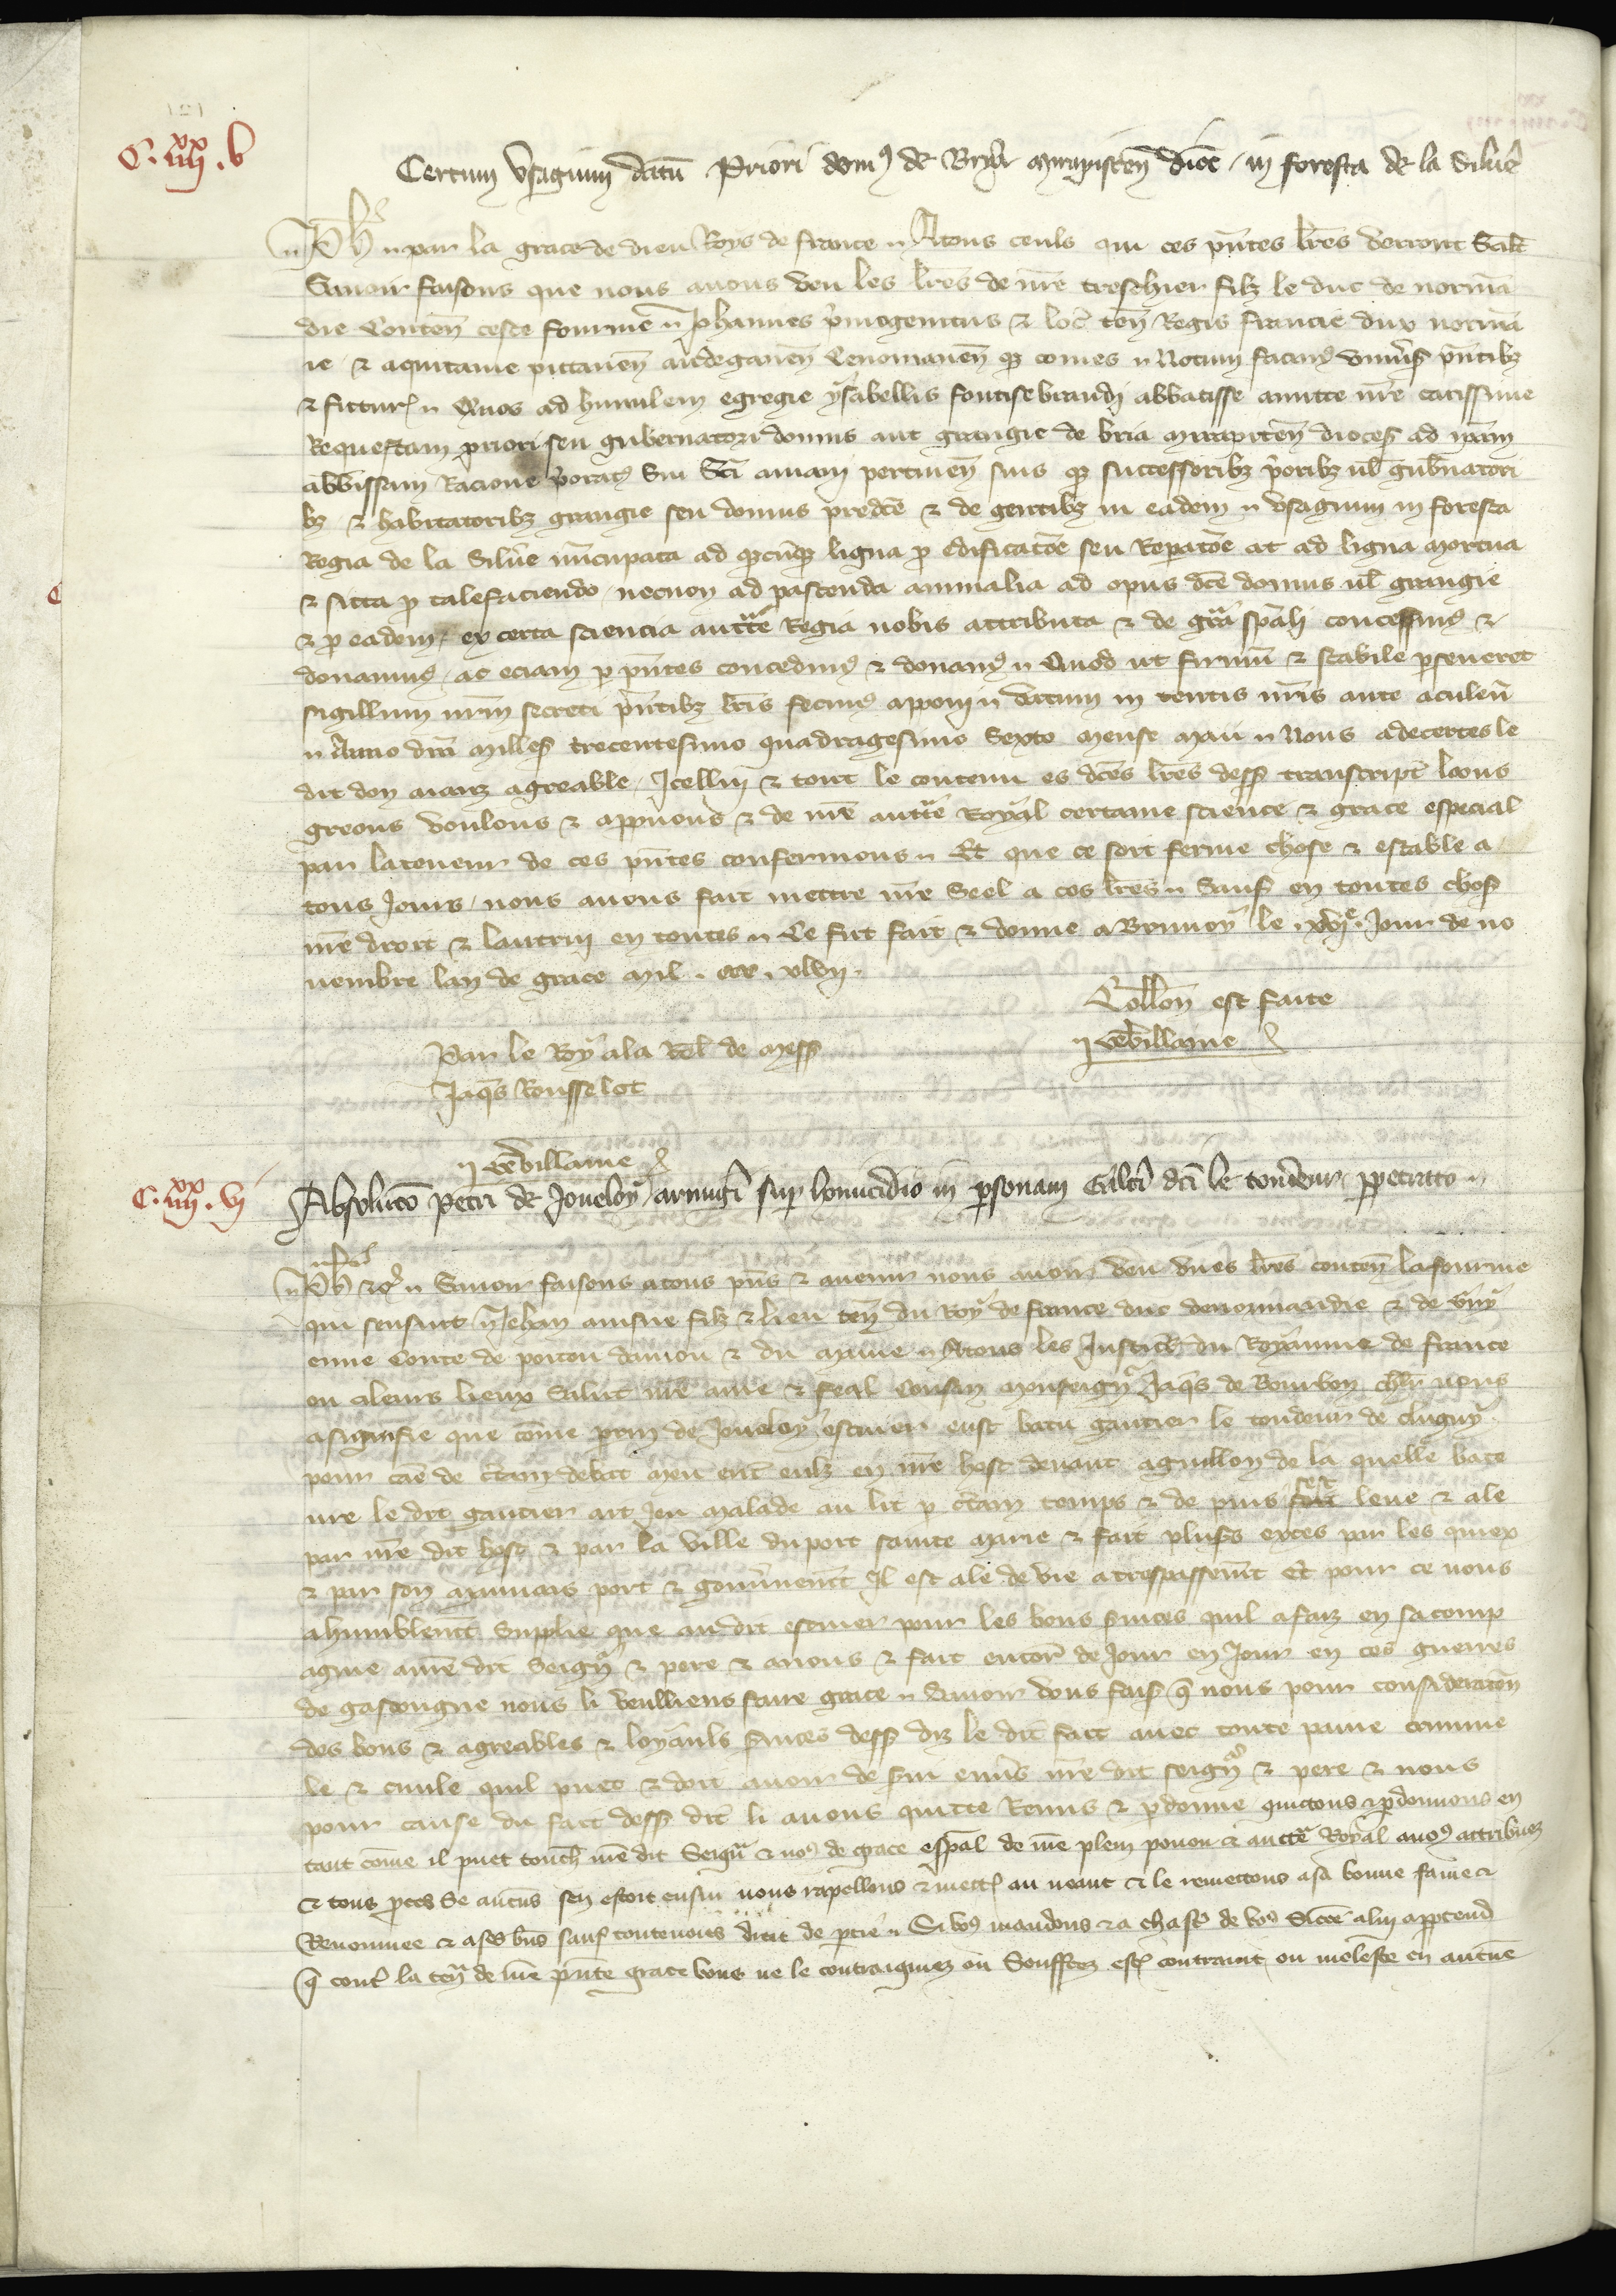 C. IIIIxx. V
Certum usagium datū Priori domꝰ de Bria Mirapiscen̄ dioc̄ / in foresta de la Silue
Ph̄s par la grace de dieu Roys de france Atous ceuls qui ces p̄ntes l̄res verront Salt̄
Sauoir faisons que nous auons veu les l̄res de nr̄e treschier filz le duc de normā
die Conten̄ ceste fourme Johannes p̄mogenitus & loc̄ ten̄ Regis francie dux normā
ie & aquitanie pictauen̄ andegauen̄ Cenomanen̄ qꝫ comes Notum facimꝰ vniu̾sis p̄ntibꝫ
& futur̄ Quos ad humilem egregie ysabellis fontisebraudi abbatisse amitte nr̄e carissime
Requestam priori seu gubernatori domus aut grangie de bria mirapiscen̄ dioces̄ ad ip̄am
abb̄issam Racione p̄oratꝰ pertinen̄ suis qꝫ successoribꝫ p̄oribꝫ ul̄ gub̄natori
bꝫ & habitatoribꝫ grangie seu domus predc̄e & de gentibꝫ in eadem usagium in foresta
Regia de la Silue nūcupata ad qꝫcūqꝫ ligna p̄ edificatōe seu Reparatōe ac ad ligna mortua
& sicca p̄ calefaciendo / necnon ad pascenda animalia ad opus dc̄e domus ul̄ grangie
& p̄ eadem / ex certa sciencia auctāte Regia nobis attributa & de grā spāli concessimꝰ &
donauimꝰ / ac eciam p̄ p̄ntes concedimꝰ & donamꝰ Quod ut firmū & stabile p̄seueret
sigillum nr̄m secreti p̄ntibꝫ l̄ris fecimꝰ apponi datum in tentis nr̄is ante aculeū
Anno dn̄i milles̄ trecentesimo quadragesimo Sexto mense maii Nous adecertes le
dit don aians agreable / Icelluy & tout le contenu es dc̄es l̄res dess̄ transcript̄ loons
greons voulons & app̄uons & de nr̄e auctē Royal certaine science & grace especial
par la teneur de ces p̄ntes confermons Et que ce soit ferme chose & estable a
tous Jours / nous auons fait mettre nr̄e Seel a ces l̄res Sauf en toutes chos̄
nr̄e droit & lautrui en toutes Ce fut fait & donne a Brunoy le xvie Jour de no
uembre lan de grace mil ccc xlvii
Coll̄on est faite
verbillame
Par le Roy ala Rel̄ de mess̄
Jaq̄s Rousselot
verbillame
C. IIIIxx. VI
Absolutō petri de Joueloy armigi̾ sup̄ homicidio in p̄sonam Galt̄i dc̄i le tondeur p̄petrato
Ph̄s &c̄ Sauoir faisons atous p̄ns & auenir nous auoir veu vnes l̄res conten̄ la fourme
qui sensuit Jehan ainsne filz & lieu ten̄ du Roy de france duc de normandie & de Guy
enne Conte de poitou danjou & du Maine Atous les Justic̄ du Royaume de france
ou aleurs lieux Salut nr̄e ame & feal Cousin monseignr̄ Jaq̄s de Bourbon chlr̄ nous
asignifie que cōme p̄rin de Joueloy escuier eust batu gautier le tondeur de clugny
pour cāe de c̄tain debat meu entr̄ eulz en nr̄e host deuant aguillon de la quelle bate
ure le dit gautier ait Jeu malade au lit p̄ c̄tain temps & de puis sest leue & ale
par nr̄e dit host & par la ville du port sainte Marie & fait plus̄s exces par les quiex
& par son mauuais port & gouu̾nement Il est ale de vie a trespassemēt Et pour ce nous
a humblemt̄ Supplie que audit escuier pour les bons s̄uices quil a faiz en sa comp
agnie a nr̄e dit Seignr̄ & pere & anous & fait encor̄ de Jour en Jour en ces guerres
de gascongne nous li veulliens faire grace Sauoir vous fais̄ q̄ nous pour consideratōn
des bons & agreables & loyauls s̄uices dess̄ diz le dit fait auec toute paine crimine
le & ciuile quil puet & doit auoir de sui enu̾s nr̄e dit seignr̄ & pere & nous
pour cause du fait dess̄ dit li auons quitte Remis & p̄donne quictons & p̄donnons en
tant cōme il puet touch̄ nr̄e dit Seignr̄ & noꝰ de grace esp̄al de nr̄e plein pouoir & auctē Royal anoꝰ attribuez
& tous p̄ces Se aucūs sen estoit ensui nous rapellons & mectōs au neant & le remectons asa bonne fame &
Renommee & ases bn̄s sauf toutenois droit de p̄tie Si voꝰ mandons & a chascū de voꝰ
q̄ contr̄ la ten̄r de nr̄e p̄nte grace vous ne le contraignez ou Souffrez estr̄ contraint ou moleste en aucūe